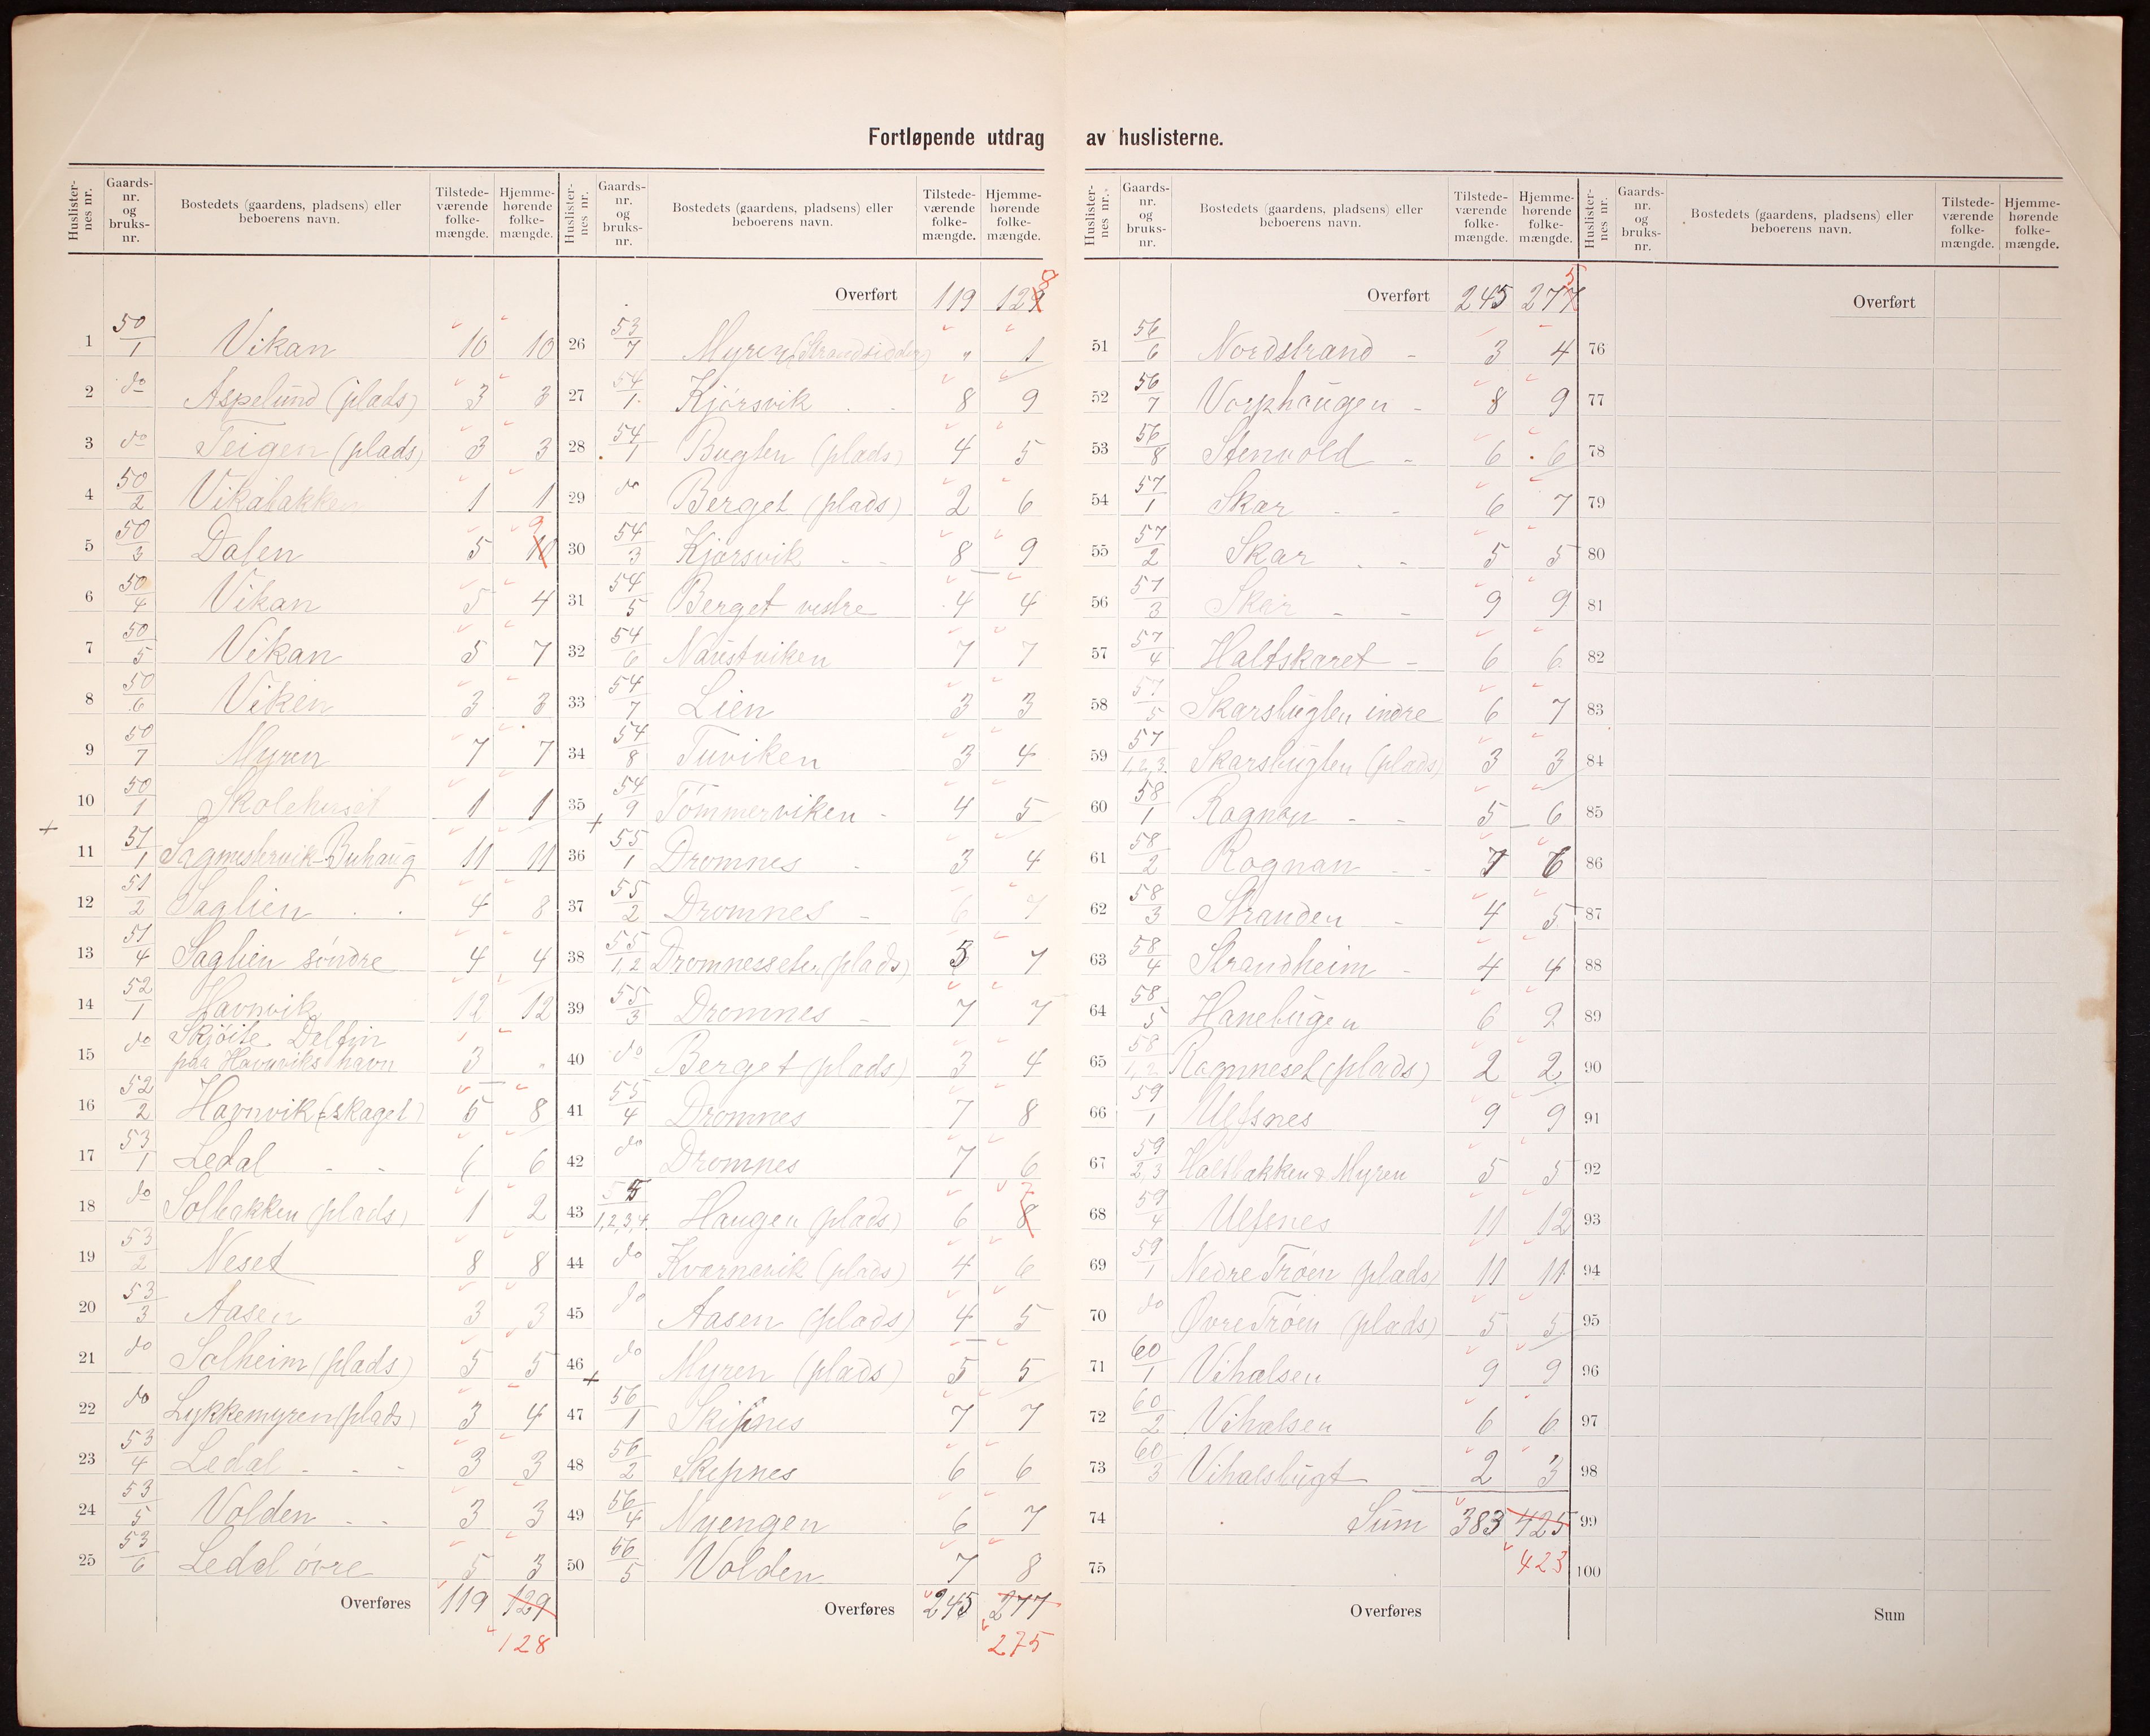 Fortløpende utdrag av huslisterne.
Huslister-nes nr. | Gaards-nr. og bruks-nr. | Bostedets (gaardens, pladsens) eller beboerens navn. | Tilstede-værende folke-mængde. | Hjemme-hørende folke-mængde.
1 50/1 Vikan 10 10
2 do Aspelund (plads) 3 3
3 do Teigen (plads) 3 3
4 50/2 Vikabakken 1 1
5 50/3 Dalen 5 10 9
6 50/4 Vikan 5 4
7 50/5 Vikan 5 7
8 50/6 Viken 3 3
9 50/7 Myren 7 7
10 50/1 Skolehuset 1 1
11 51/1 Sagmestervik-Buhaug 11 11
12 51/2 Saglien 4 8
13 51/4 Saglien söndre 4 4
14 52/1 Havnvik 12 12
15 do Skjöite Delfin
paa Havnviks havn 3 "
16 52/2 Havnvik (Eskaget) 5 8
17 53/1 Ledal 6 6
18 do Solbakken (plads) 1 2
19 53/2 Neset 8 8
20 53/3 Aasen 3 3
21 do Solheim (plads) 5 5
22 do Lykkemyren (plads) 3 4
23 53/4 Ledal 3 3
24 53/5 Volden 3 3
25 53/6 Ledal övre 5 3
Overføres 119 129
128
Huslister-nes nr. | Gaards-nr. og bruks-nr. | Bostedets (gaardens, pladsens) eller beboerens navn. | Tilstede-værende folke-mængde. | Hjemme-hørende folke-mængde.
Overført 119 129 8
26 53/7 Myren (Strandsidder) " 1
27 54/1 Kjörsvik 8 9
28 54/1 Bugten (plads) 4 5
29 do Berget (plads) 2 6
30 54/3 Kjörsvik 8 9
31 54/5 Berget vestre 4 4
32 54/6 Naustviken 7 7
33 54/7 Lien 3 3
34 54/8 Tuviken 3 4
35 54/9 Tömmerviken 4 5
36 55/1 Dromnes 3 4
37 55/2 Dromnes 6 7
38 55/1,2 Dromnesseter (plads) 3 7
39 55/3 Dromnes 7 7
40 do Berget (plads) 3 4
41 55/4 Dromnes 7 8
42 do Dromnes 7 6
43 55/1,2,3,4. Haugen (plads) 6 8 7
44 do Kvernevik (plads) 4 6
45 do Aasen (plads) 4 5
46 do Myren (plads) 5 5
47 56/1 Skipnes 7 7
48 56/2 Skepnes 6 6
49 56/4 Nyengen 6 7
50 56/5 Volden 7 8
Overføres 245 277
275
Huslister-nes nr. | Gaards-nr. og bruks-nr. | Bostedets (gaardens, pladsens) eller beboerens navn. | Tilstede-værende folke-mængde. | Hjemme-hørende folke-mængde.
Overført 245 277 5
51 56/6 Nordstrand 3 4
52 56/7 Vorphaugen 8 9
53 56/8 Stenvold 6 6
54 57/1 Skar 6 7
55 57/2 Skar 5 5
56 57/3 Skar 9 9
57 57/4 Haltskaret 6 6
58 57/5 Skarsbugten indre 6 7
59 57/1,2,3. Skarsbugten (plads) 3 3
60 58/1 Rognan 5 6
61 58/2 Rognan 7 6
62 58/3 Stranden 4 5
63 58/4 Strandheim 4 4
64 58/5 Hanebugen 6 2
65 58/1,2 Rognneset (plads) 2 2
66 59/1 Ulfsnes 9 9
67 59/2,3 Haltbakken & Myren 5 5
68 59/4 Ulfsnes 11 12
69 59/1 Nedre Tröen (plads) 11 11
70 do Øvre Tröen (plads) 5 5
71 60/1 Vihalsen 9 9
72 60/2 Vihalsen 6 6
73 60/3 Vihalsbugt 2 3
74 Sum 383 425
75 423
Overføres
Huslister-nes nr. | Gaards-nr. og bruks-nr. | Bostedets (gaardens, pladsens) eller beboerens navn. | Tilstede-værende folke-mængde. | Hjemme-hørende folke-mængde.
Overført
76
77
78
79
80
81
82
83
84
85
86
87
88
89
90
91
92
93
94
95
96
97
98
99
100
Sum